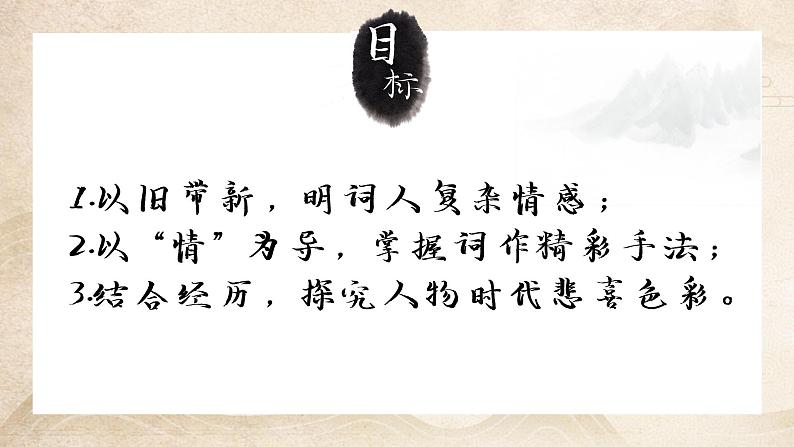 目标
1.以旧带新，明词人复杂情感；
2.以“情”为导，掌握词作精彩手法；
3.结合经历，探究人物时代悲喜色彩。